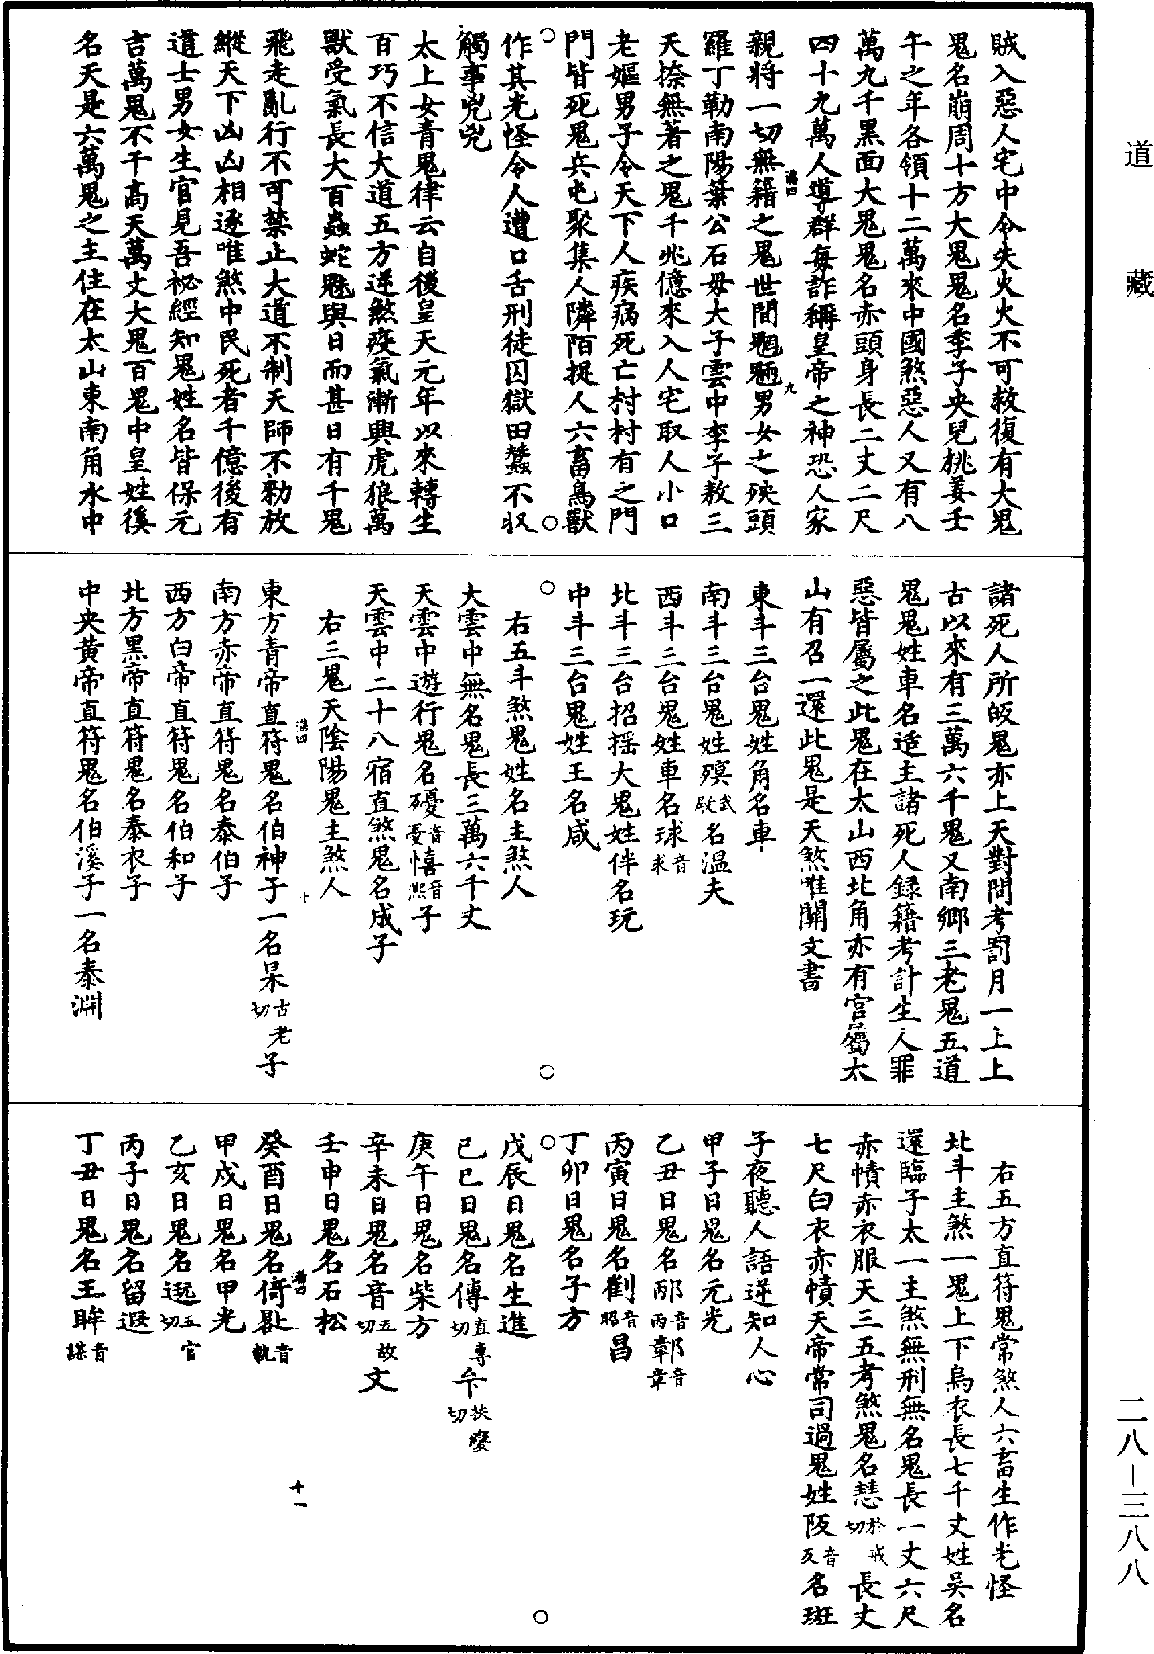 道藏
賊入惡人宅中令失火火不可救復有大鬼
鬼名崩周十方大鬼鬼名李子央兒桃姜壬
午之年各領十二萬來中國煞惡人又有八
萬九千黑面大鬼鬼名赤頭身長二丈二尺
四十九萬人導群每詐稱皇帝之神恐人家
親將一切無籍之鬼世間魍魎男女之殃頭
羅丁勒南陽葉公石毋大子雲中李子敖三
天捺無著之鬼千兆億來入人宅取人小口
老嫗男子令天下人疾病死亡村村有之門
門皆死鬼兵屯聚集人隣陌捉人六畜鳥獸
作其光怪令人遭口舌刑徒囚獄田蠶不収
觸事兇兇
太上女青鬼律云自後皇天元年以來轉生
百巧不信大道五方逆煞疫氣漸興虎狼萬
獸受氣長大百蟲蛇魅與日而甚日有千鬼
飛走亂行不可禁止大道不制天師不勑放
縱天下凶凶相逐唯煞中民死者千億後有
道士男女生官見吾祕經知鬼姓名皆保元
吉萬鬼不千高天萬丈大鬼百鬼中皇姓徯
名天是六萬鬼之主住在太山東南角水中
諸死人所皈鬼亦上天對問考罰月一上上
古以來有三萬六千鬼又南鄉三老鬼五道
鬼鬼姓車名适主諸死人録籍考計生人罪
惡皆屬之此鬼在太山西北角亦有宮屬太
山有召一還此鬼是天煞唯開文書
東斗三台鬼姓角名車
南斗三台鬼姓殞武名溫夫
西斗三台鬼姓車名球音求
北斗三台招摇大鬼姓伴名玩
中斗三台鬼姓王名咸
右五斗煞鬼姓名主煞人
大雲中無名鬼長三萬六千丈
天雲中遊行鬼名殢音憂憘音熙子
天雲中二十八宿直煞鬼名成子
右三鬼天陰陽鬼主煞人
東方青帝直符鬼名伯神子一名杲古老切子
南方赤帝直符鬼名泰伯子
西方白帝直符鬼名伯和子
北方黑帝直符鬼名泰衣子
中央黄帝直符鬼名伯溪子一名泰淵
右五方直符鬼常煞人六畜生作光怪
北斗主煞一鬼上下烏衣長七千丈姓吳名
還臨子太一主煞無刑無名鬼長一丈六尺
赤幘赤衣服天三五考煞鬼名㥣於戒切長丈
七尺白衣赤幘天帝常司過鬼姓阪音反名斑
子夜聽人語逆知人心
甲子日鬼名元光
乙丑日鬼名邴音丙鄣音章
丙寅日鬼名劉音昭昌
丁卯日鬼名子方
戊辰日鬼名生進
己巳日鬼名傳直專切卞扶變切
庚午日鬼名柴方
辛未日鬼名音五故切文
壬申日鬼名石松
癸酉日鬼名倚匙音軌
甲戌日鬼名甲光
乙亥日鬼名遥五官切
丙子日鬼名留遐
丁丑日鬼名王眸音謀
二八－三八八